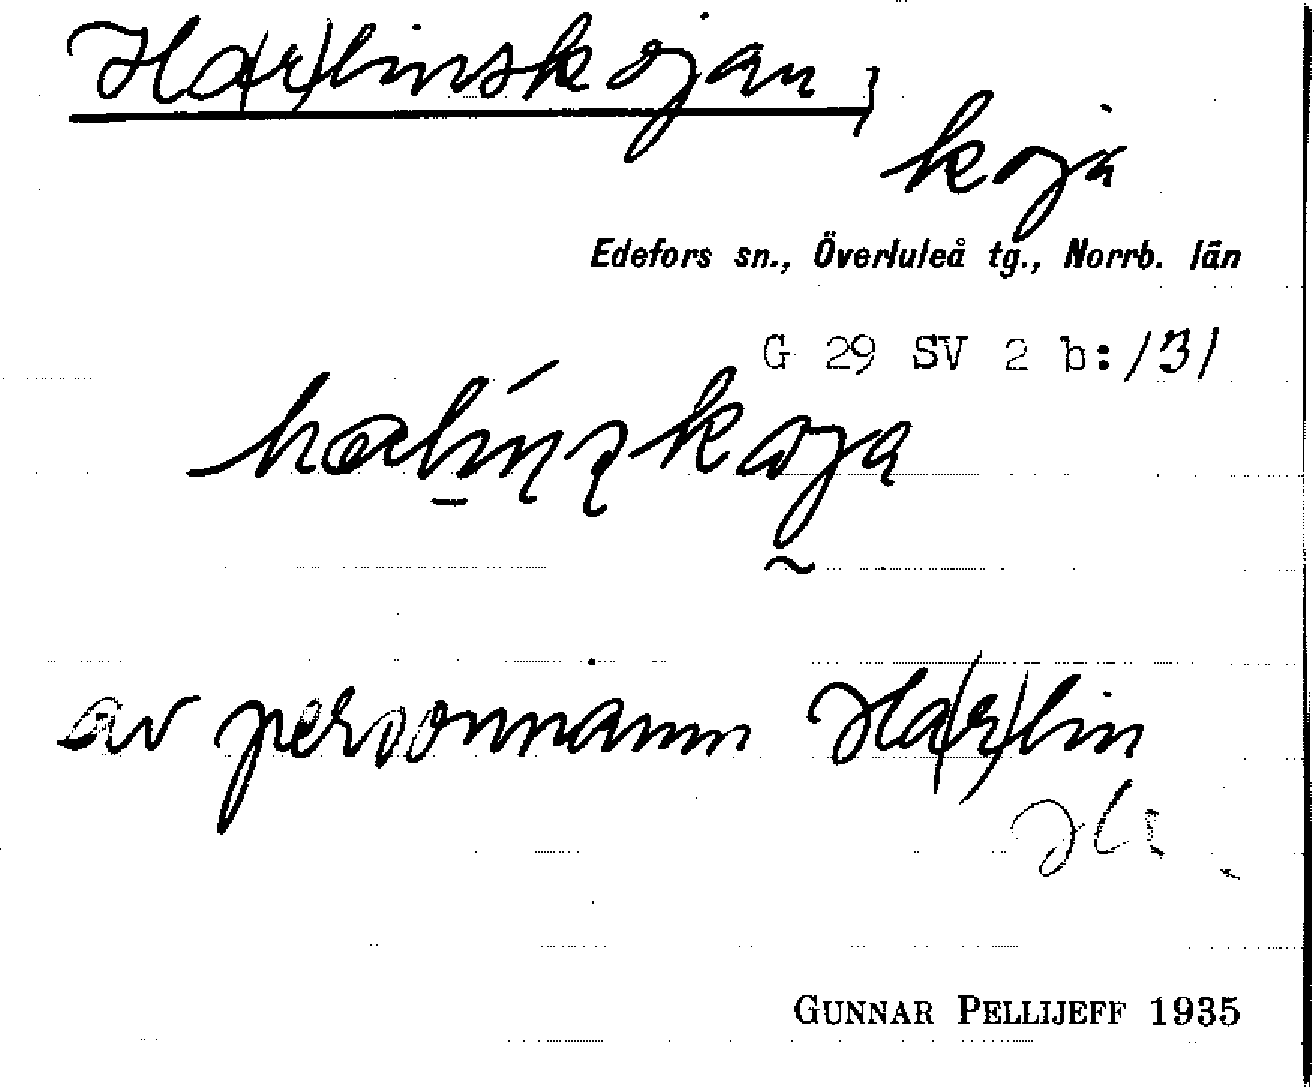 Ha(r)linskojan,
koja
Edefors sn., Överluleå tg., Norrb. län
G 29 SV 2 b: /31
av personnamn Ha(r)lin
GUNNAR PELLIJEFF 1935